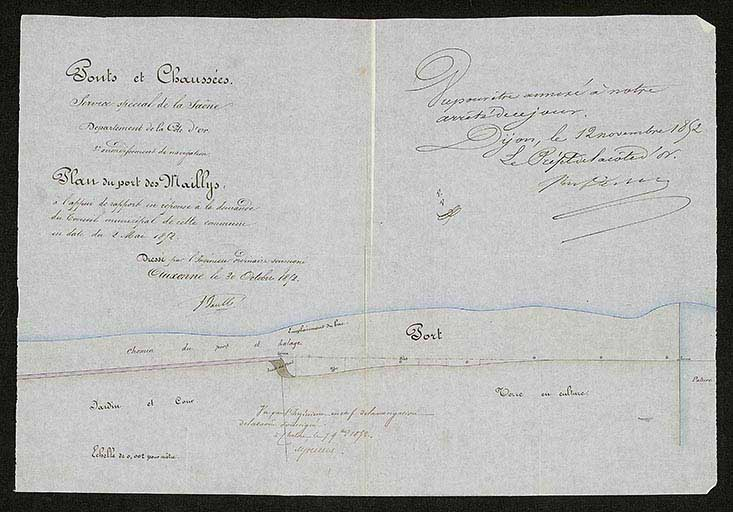 Ponts et Chaussées.
Service spécial de la Saône
Département de la Côte d'or
de navigation
Plan du port des Maillys,
à l'appui de rapport en réponse à la demande
du Conseil municipal de cette commune
en date du 2 Mai 1852
Dressé par l'Ingénieur ordinaire soussigné
Auxonne le 30 Octobre 1852.
Vu pour être annexé à notre
arrêté de ce jour.
Dijon, le 12 novembre 1852
Le Préfet de la côte d'or.
Emplacement du bac
Port
Chemin du port et halage
Pature
Jardin et Cour
Terre en culture
Vu par l'Ingénieur en chef de la navigation
de la Saône soussigné
le 7 9bre 1852.
Echelle de 0,002 pour mètre.